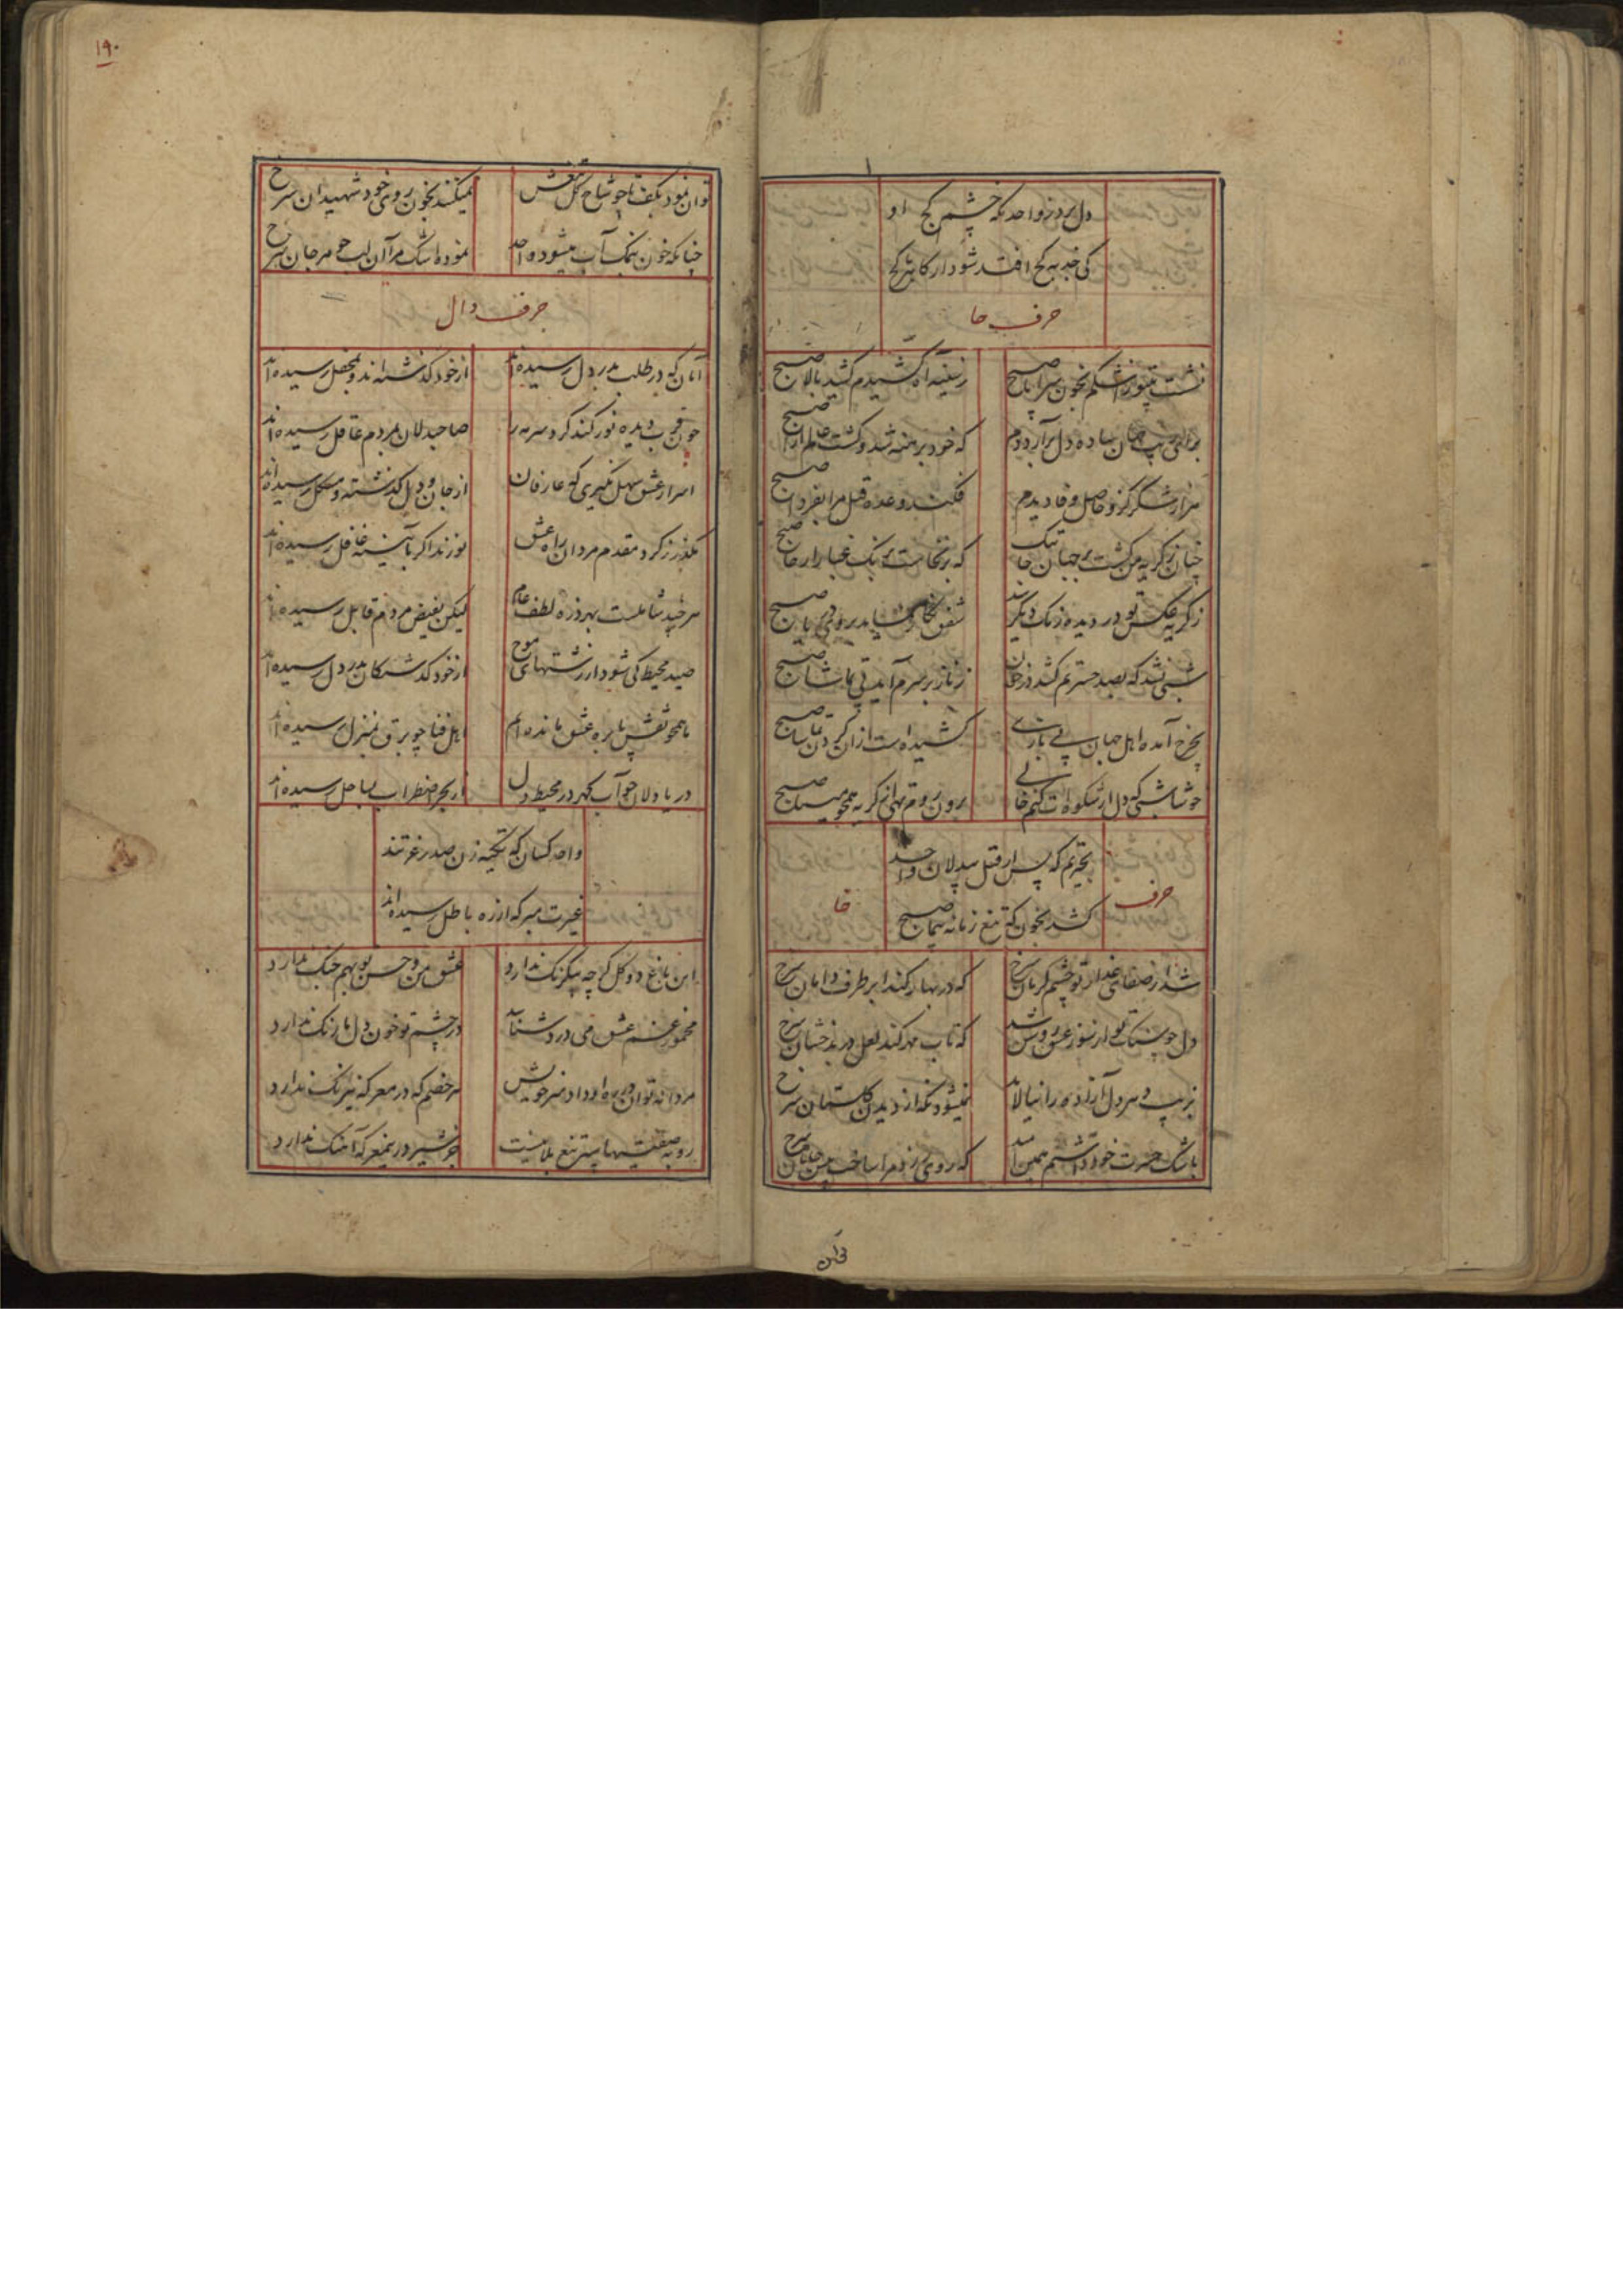 دل بردن واحد نکه چشم کج او
کی خبر به کج افتد شود ار کا بتر کج
حرف حا
نشست بخون سراپا صبح
ز سینه آه کشیدم کشید بالا صبح
ساده دل برآر دوم
که خود برهنه شد و کشت صبح
هزار شکر کزو حاصل وفا دیدم
فکند وعده قتل مرا بفردا صبح
چنان ز کریه من کشت
که برنخاست برنک غبار از جا صبح
ز کریه عکس تو در دیده رنک دیکر
شفق صبح
شبی نشد که بصد حسرتم کشد
ز ناز بر سرم آید پی تماشا صبح
بچرخ آمده اهل جهان پی بازی
کشیده است از ان کردن صبح
خوشا شبی که دل از شکوه ات کنم خالی
برون روم کریه همچو صبح
که پس از قتل بیدلان واحد
کشد بخون که تیغ زمانه پیما صبح
حرف خا
شد از صفای عذار تو چشم کریان سرخ
که در بهار کند ابر طرف دامان سرخ
دل چو سنک تو از سوز عشق روشن شد
که تاب مهر کند لعل در بدخشان سرخ
فریب دهر دل آزاده را نیالاید
نمیشود نکه از دیدن کلستان سرخ
باشک حسرت خود داشتم همین امید
که روی زرد مرا ساخت سرخ
توان
۱۹۰
توان نمود بکف تا چو شاخ کل تیغش
نمیکنند بخون روی خود شهیدان سرخ
چنانکه خون بنمک آب میشود واحد
نموده اشک مرا آن لب چو مرجان سرخ
حرف دال
آنان که در طلب بدر دل رسیده اند
از خود کذشته اند و بمحفل رسیده اند
چون قرب دیده نور کند کرد سرمه را
صاحبدلان بمردم غافل رسیده اند
اسرار عشق سهل نکیری که عارفان
از جان و دل کذشته و مشکل رسیده اند
بکذر ز کرد مقدم مردان راه عشق
نورند اکر بآیینه غافل رسیده اند
هر چند شاملست بهر ذره لطف عام
لیکن بفیض مردم قابل رسیده اند
صید محیط کی شود از رشتهای موج
از خود کذشتکان بدر دل رسیده اند
ما همچو نقش پا بره عشق مانده ایم
اهل فنا چو برق بمنزل رسیده اند
دریا دلان چو آب کهر در محیط دل
از بحر اضطراب بساحل رسیده اند
واحد کسان که تکیه زن صدر عزتند
غیرت مبر که از ره باطل رسیده اند
این باغ دو کل کر چه بیکرنک ندارد
عشق من و حسن تو بهم جنک ندارد
مخمور غم عشق می درد شناسد
در چشم تو خون دل ما رنک ندارد
مردانه توان داد سر خویش
هر خصم که در معرکه نیرنک ندارد
روبه صفتیها سپر تیغ بلا نیست
چون شیر درین معرکه آهنک ندارد